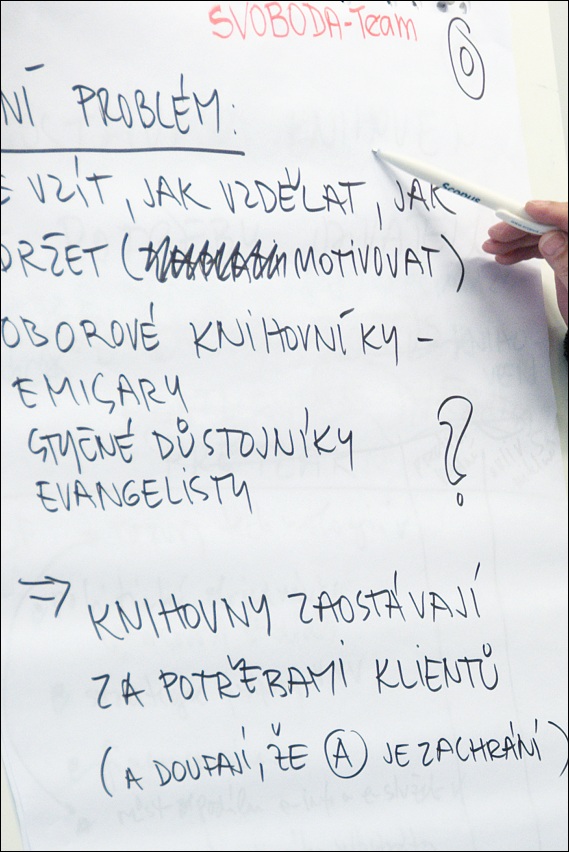 SVOBODA-Team
6
NÍ PROBLÉM:
E VZÍT, JAK VZDĚLAT, JAK
DRŽET (MOTIVOVAT)
OBOROVÉ KNIHOVNÍKY -
EMISARY
STYČNÉ DŮSTOJNÍKY
EVANGELISTY
?
⇒ KNIHOVNY ZAOSTÁVAJÍ
ZA POTŘEBAMI KLIENTŮ
(A DOUFAJÍ, ŽE A JE ZACHRÁNÍ)